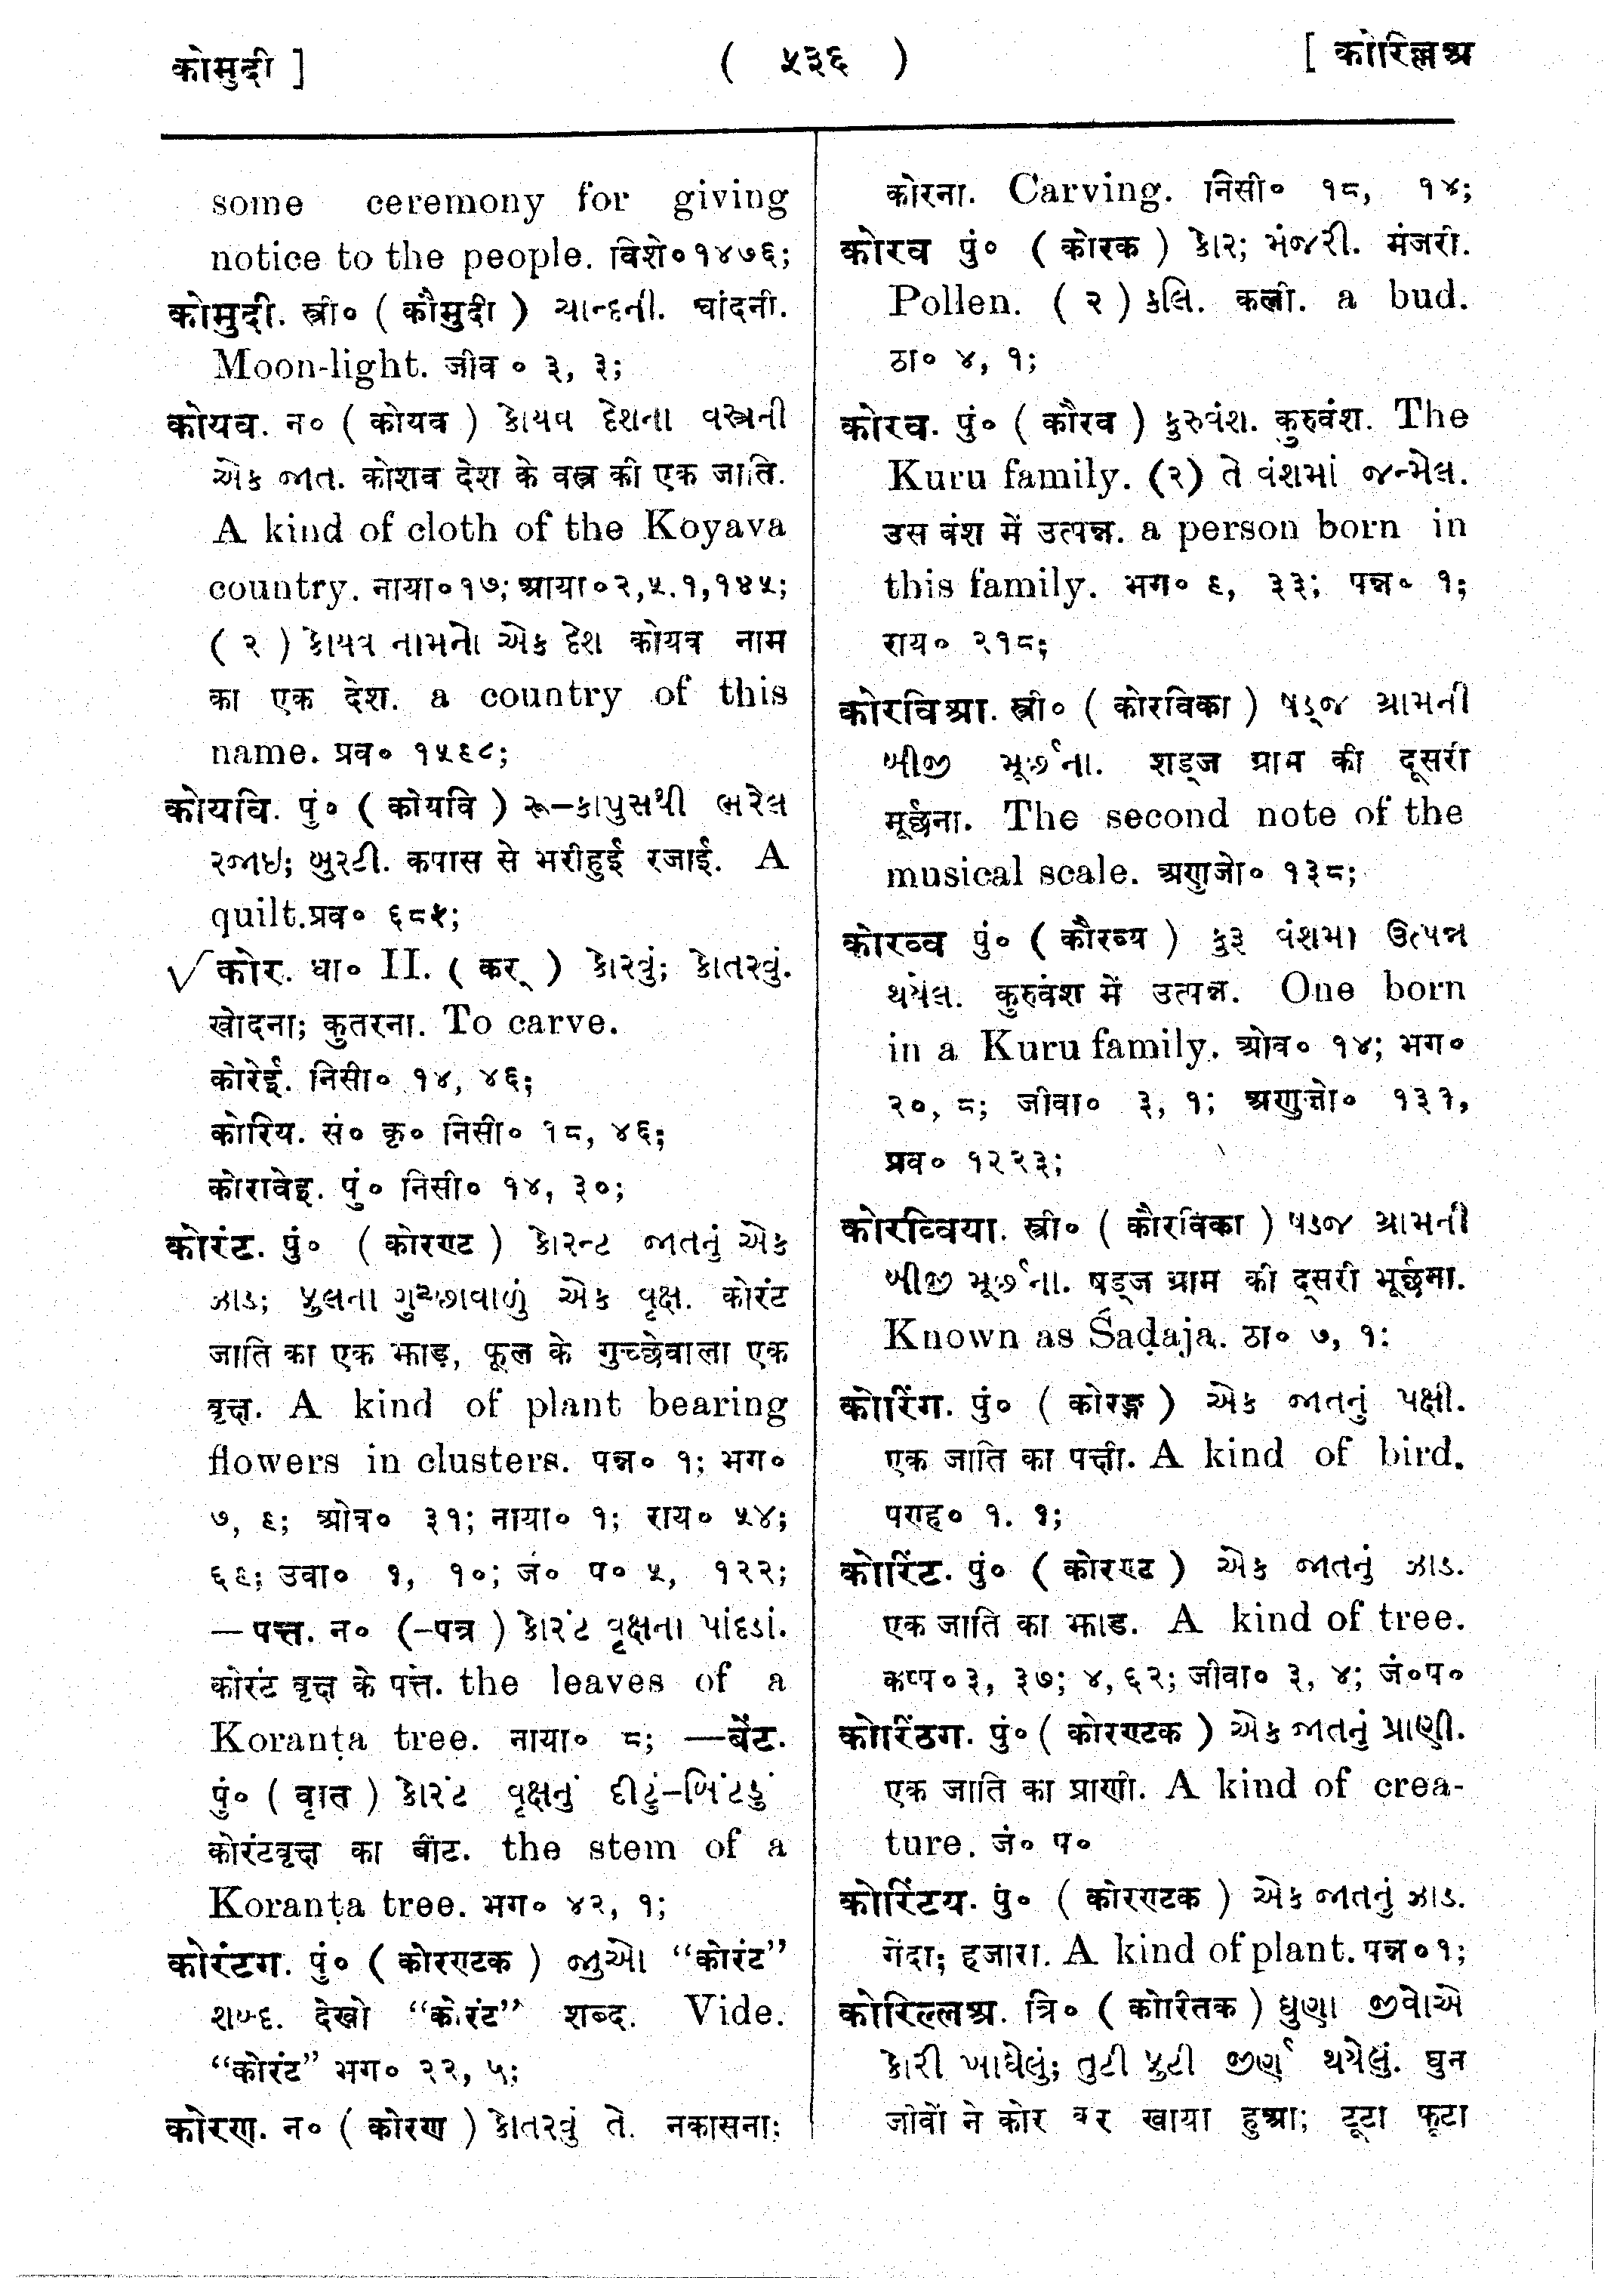 कोमुदी ]
( ५३६ )
[ कोरिल्लअ
some ceremony for giving
notice to the people. विशे० १४७६;
कोमुदी. स्त्री० ( कौमुदी ) ચાન્દની. चांदनी.
Moon-light. जीव ० ३, ३;
कोयव. न० ( कोयव ) કોયવ દેશના વસ્ત્રની
એક જાત. कोशव देश के वस्त्र की एक जाति.
A kind of cloth of the Koyava
country. नाया० १७; आया० २, ५. १, १४५;
( २ ) કોયવ નામનો એક દેશ कोयव नाम
का एक देश. a country of this
name. प्रव० १५६८;
कोयवि. पुं० ( कोयवि ) રૂ–કાપુસથી ભરેલ
રજાઇ; બુરટી. कपास से भरीहुई रजाई. A
quilt. प्रव० ६८५;
√ कोर. धा० II. ( कर् ) કોરવું; કોતરવું.
खोदना; कुतरना. To carve.
कोरेई. निसी० १४, ४६;
कोरिय. सं० कृ० निसी० १८, ४६;
कोरावेइ. पुं० निसी० १४, ३०;
कोरंट. पुं० ( कोरण्ट ) કોરન્ટ જાતનું એક
ઝાડ; ફુલના ગુચ્છાવાળું એક વૃક્ષ. कोरंट
जाति का एक झाड़, फूल के गुच्छेवाला एक
वृक्ष. A kind of plant bearing
flowers in clusters. पन्न० १; भग०
७, ९; ओव० ३१; नाया० १; राय० ५४;
६९; उवा० १, १०; जं० प० ५, १२२;
—पत्त. न० (-पत्र ) કોરંટ વૃક્ષના પાંદડાં.
कोरंट वृक्ष के पत्ते. the leaves of a
Koranṭa tree. नाया० ८; —बेंट.
पुं० ( वृन्त ) કોરંટ વૃક્ષનું દીટું–બિંટડું
कोरंटवृक्ष का बींट. the stem of a
Koranṭa tree. भग० ४२, १;
कोरंटग. पुं० ( कोरण्टक ) જુઓ “कोरंट”
શબ્દ. देखो “कोरंट” शब्द. Vide.
“कोरंट” भग० २२, ५;
कोरण. न० ( कोरण ) કોતરવું તે. नकासना;
कोरना. Carving. निसी० १८, १४;
कोरव पुं० ( कोरक ) કોર; મંજરી. मंजरी.
Pollen. ( २ ) કલિ. कली. a bud.
ठा० ४, १;
कोरव. पुं० ( कौरव ) કુરુવંશ. कुरुवंश. The
Kuru family. (२) તે વંશમાં જન્મેલ.
उस वंश में उत्पन्न. a person born in
this family. भग० ९, ३३; पन्न० १;
राय० २१८;
कोरविआ. स्त्री० ( कोरविका ) ષડ્જ ગ્રામની
બીજી મૂર્છના. शड्ज ग्राम की दूसरी
मूर्छना. The second note of the
musical scale. अणुजो० १३८;
कोरव्व पुं० ( कौरव्य ) કુરૂ વંશમાં ઉત્પન્ન
થયેલ. कुरुवंश में उत्पन्न. One born
in a Kuru family. ओव० १४; भग०
२०, ८; जीवा० ३, १; अणुजो० १३१,
प्रव० १२२३;
कोरव्विया. स्त्री० ( कौरविका ) ષડજ ગ્રામની
બીજી મૂર્છના. षड्ज ग्राम की दूसरी मूर्छमा.
Known as Śaḍaja. ठा० ७, १;
कोरिंग. पुं० ( कोरङ्ग ) એક જાતનું પક્ષી.
एक जाति का पक्षी. A kind of bird.
पराह० १. १;
कोरिंट. पुं० ( कोरण्ट ) એક જાતનું ઝાડ.
एक जाति का झाड. A kind of tree.
कप्प० ३, ३७; ४, ६२; जीवा० ३, ४; जं०प०
कोरिंठग. पुं० ( कोरण्टक ) એક જાતનું પ્રાણી.
एक जाति का प्राणी. A kind of crea-
ture. जं० प०
कोरिंटय. पुं० ( कोरण्टक ) એક જાતનું ઝાડ.
गेंदा; हजारा. A kind of plant. पन्न० १;
कोरिल्लअ. त्रि० ( कोरितक ) ઘુણા જીવોએ
કોરી ખાધેલું; તુટી ફુટી જીર્ણ થયેલું. घुन
जीवों ने कोर कर खाया हुआ; टूटा फूटा